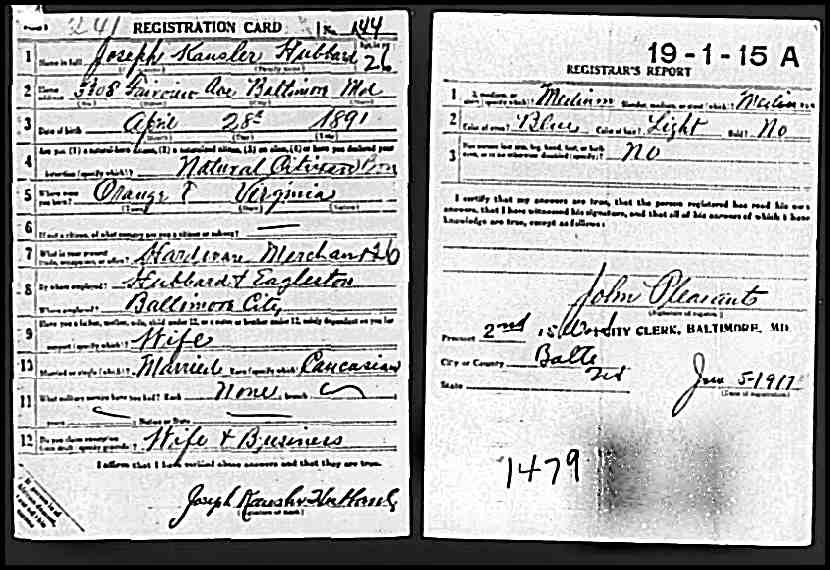 REGISTRATION CARD No. 144
1 Name in full Joseph Kausler Hubbard Age, in yrs. 26
2 Home address 3308 Fairview Ave Baltimore Md
(No.) (Street) (City) (State)
3 Date of birth April 28th 1891
(Month) (Day) (Year)
4 Are you (1) a natural-born citizen, (2) a naturalized citizen, (3) an alien, (4) or have you declared your
intention (specify which)? Natural Citizen Born
5 Where were you born? Orange Virginia
(Town) (State) (Nation)
6 If not a citizen, of what country are you a citizen or subject?
7 What is your present trade, occupation, or office? Hardware Merchant 26
8 By whom employed? Hubbard & Eagleston
Where employed? Baltimore City
9 Have you a father, mother, wife, child under 12, or a sister or brother under 12, solely dependent on you for
support (specify which)? Wife
10 Married or single (which)? Married Race (specify which)? Caucasian
11 What military service have you had? Rank None ; branch
years ; Nation or State
12 Do you claim exemption from draft (specify grounds)? Wife & Business
I affirm that I have verified above answers and that they are true.
Joseph Kausler Hubbard
19-1-15 A
REGISTRAR'S REPORT
1 Tall, medium, or short (specify which)? Medium Slender, medium, or stout (which)? Medium
2 Color of eyes? Blue Color of hair? Light Bald? No
3 Has person lost arm, leg, hand, foot, or both eyes, or is he otherwise disabled (specify)? No
I certify that my answers are true, that the person registered has read his own
answers, that I have witnessed his signature, and that all of his answers of which I have
knowledge are true, except as follows:
John Pleasants
(Signature of registrar)
Precinct 2nd 15 Ward CITY CLERK, BALTIMORE, MD.
City or County Balto
State Md June 5-1917
(Date of registration)
1479